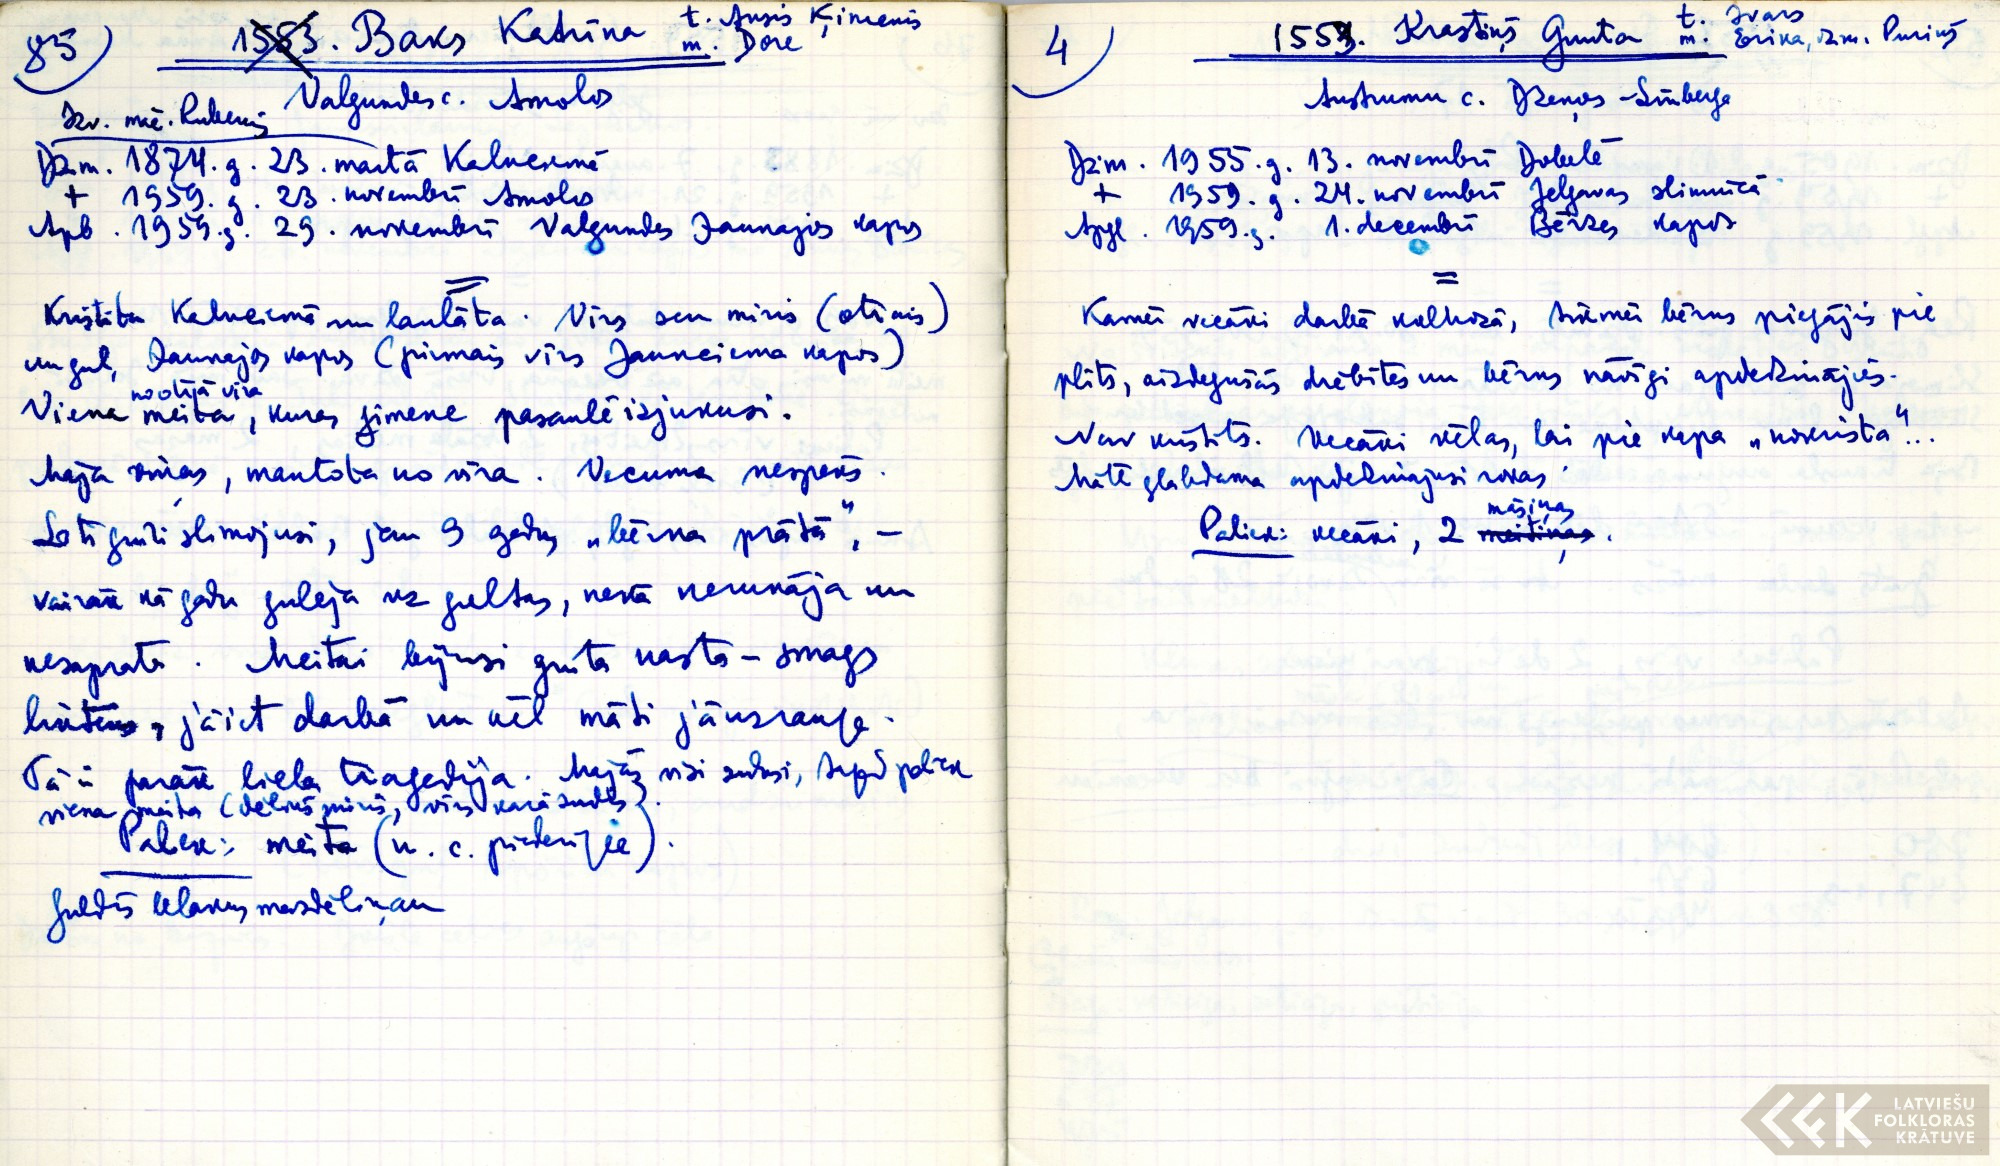 85)
1553. Baks Katrīna t. Ansis Ķimenis
m. Dore
Valgundes c. Amolos
Izv. māc. Rubenis
Dzm. 1874. g. 23. martā Kalnciemā
+ 1959. g. 23. novembrī Amolos
Apb. 1959. g. 29. novembrī Valgundes Jaunajos kapos
=
Kristīta Kalnciemā un laulāta. Vīrs sen miris (otrais)
un guļ Jaunajos kapos (pirmais vīrs Jaunciema kapos)
no otrā vīra
Viena meita, kuras ģimene pasaulē izjukusi.
Mājā viņas, mantota no vīra. Vecuma nespēks.
Ļoti grūti slimojusi, jau 9 gadus „bērna prātā", –
vairāk kā gadu gulēja uz gultas, nekā nerunāja un
nesaprata. Meitai bijusi grūta nasta – smags
liktens, jāiet darbā un vēl māti jāuzrauga.
Tā ir parāk liela traģēdija. Mājās visi zuduši, tagad paliek
viena meita (dēliņš miris, vīrs karā zudis).
Paliek: meita (u. c. piederīgie).
Guldīs blakus mazdēliņam
4)
1553. Krastiņš Gunta t. Ivars
m. Ērika, dzm. Puriņš
Austrumu c. Dzeņos - Limberga
Dzim. 1955. g. 13. novembrī Dobelē
+ 1959. g. 24. novembrī Jelgavas slimnīcā
Apgl. 1959. g. 1. decembrī Bērzes kapos
=
Kamēr vecāki darbā kolhozā, tikmēr bērns piegājis pie
plīts, aizdegušās drēbītes un bērns nāvīgi apdedzinājies.
Nav kristīts. Vecāki vēlas, lai pie kapa „nokrista"...
Māte glābdama apdedzinājusi rokas
māsiņas
Paliek: vecāki, 2 meitiņas.
LATVIEŠU
FOLKLORAS
KRĀTUVE